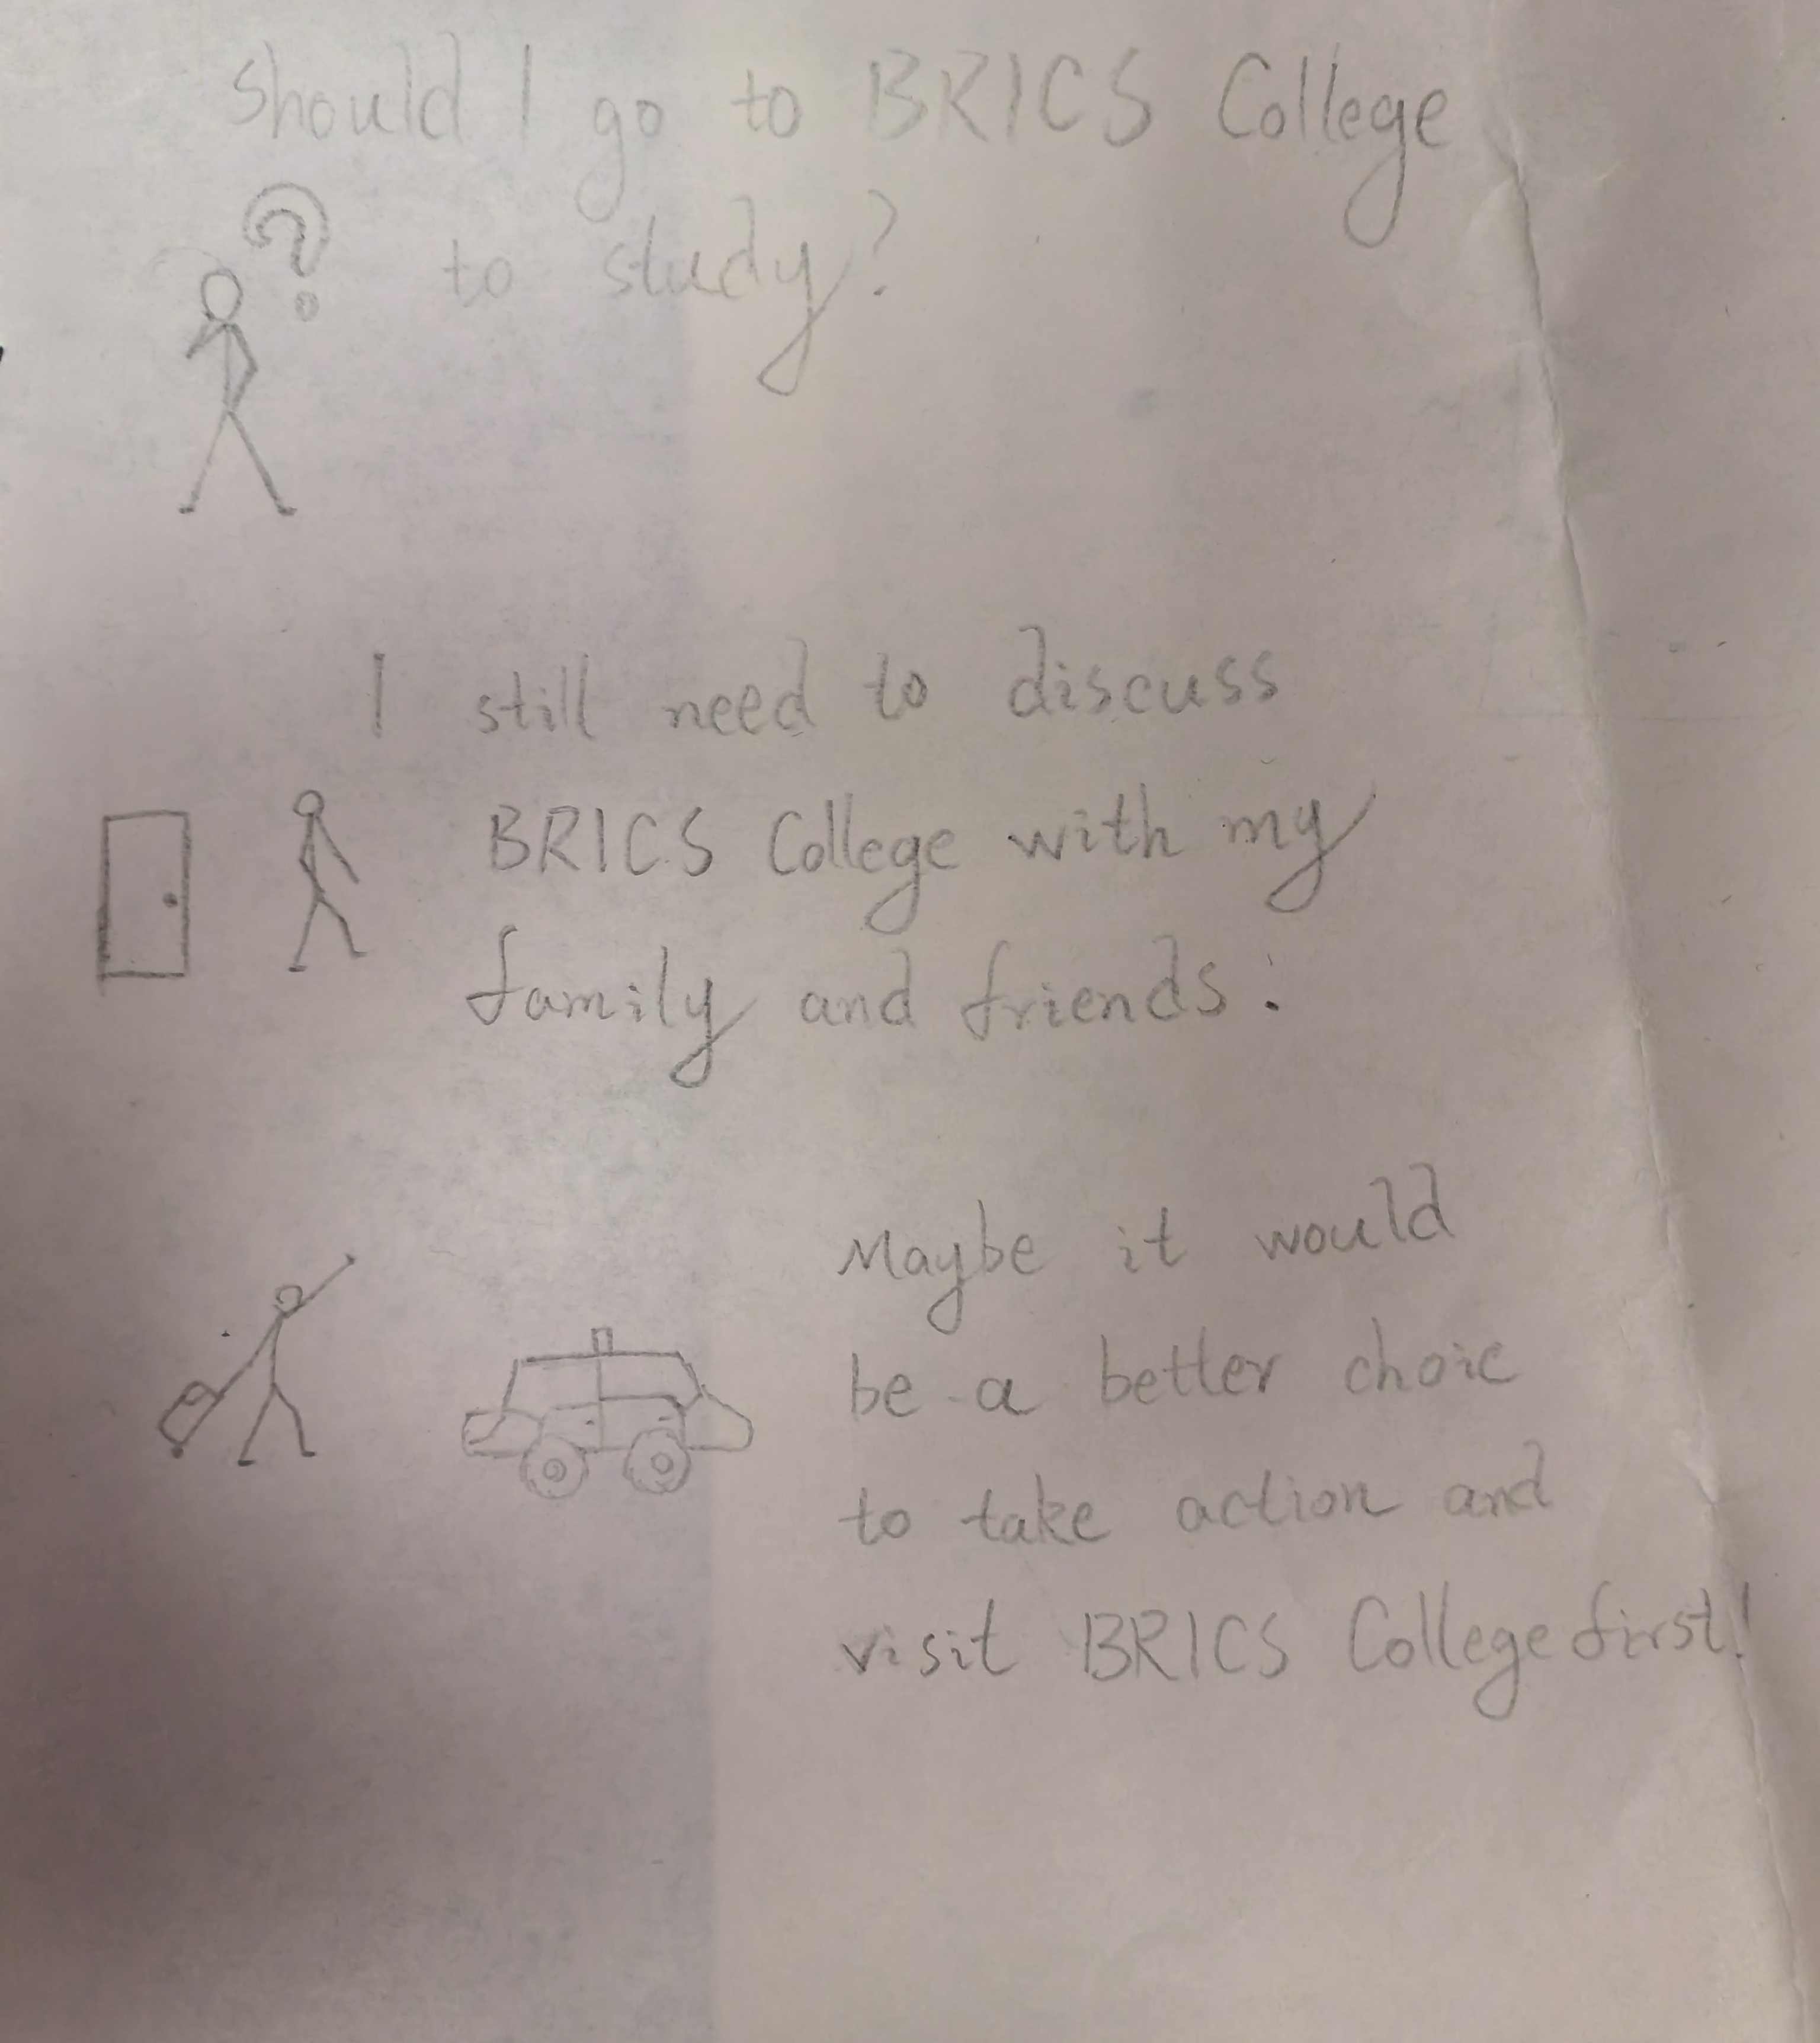 Should I go to BRICS College
to study?
I still need to discuss
BRICS College with my
family and friends.
Maybe it would
be a better choic
to take action and
visit BRICS College first!